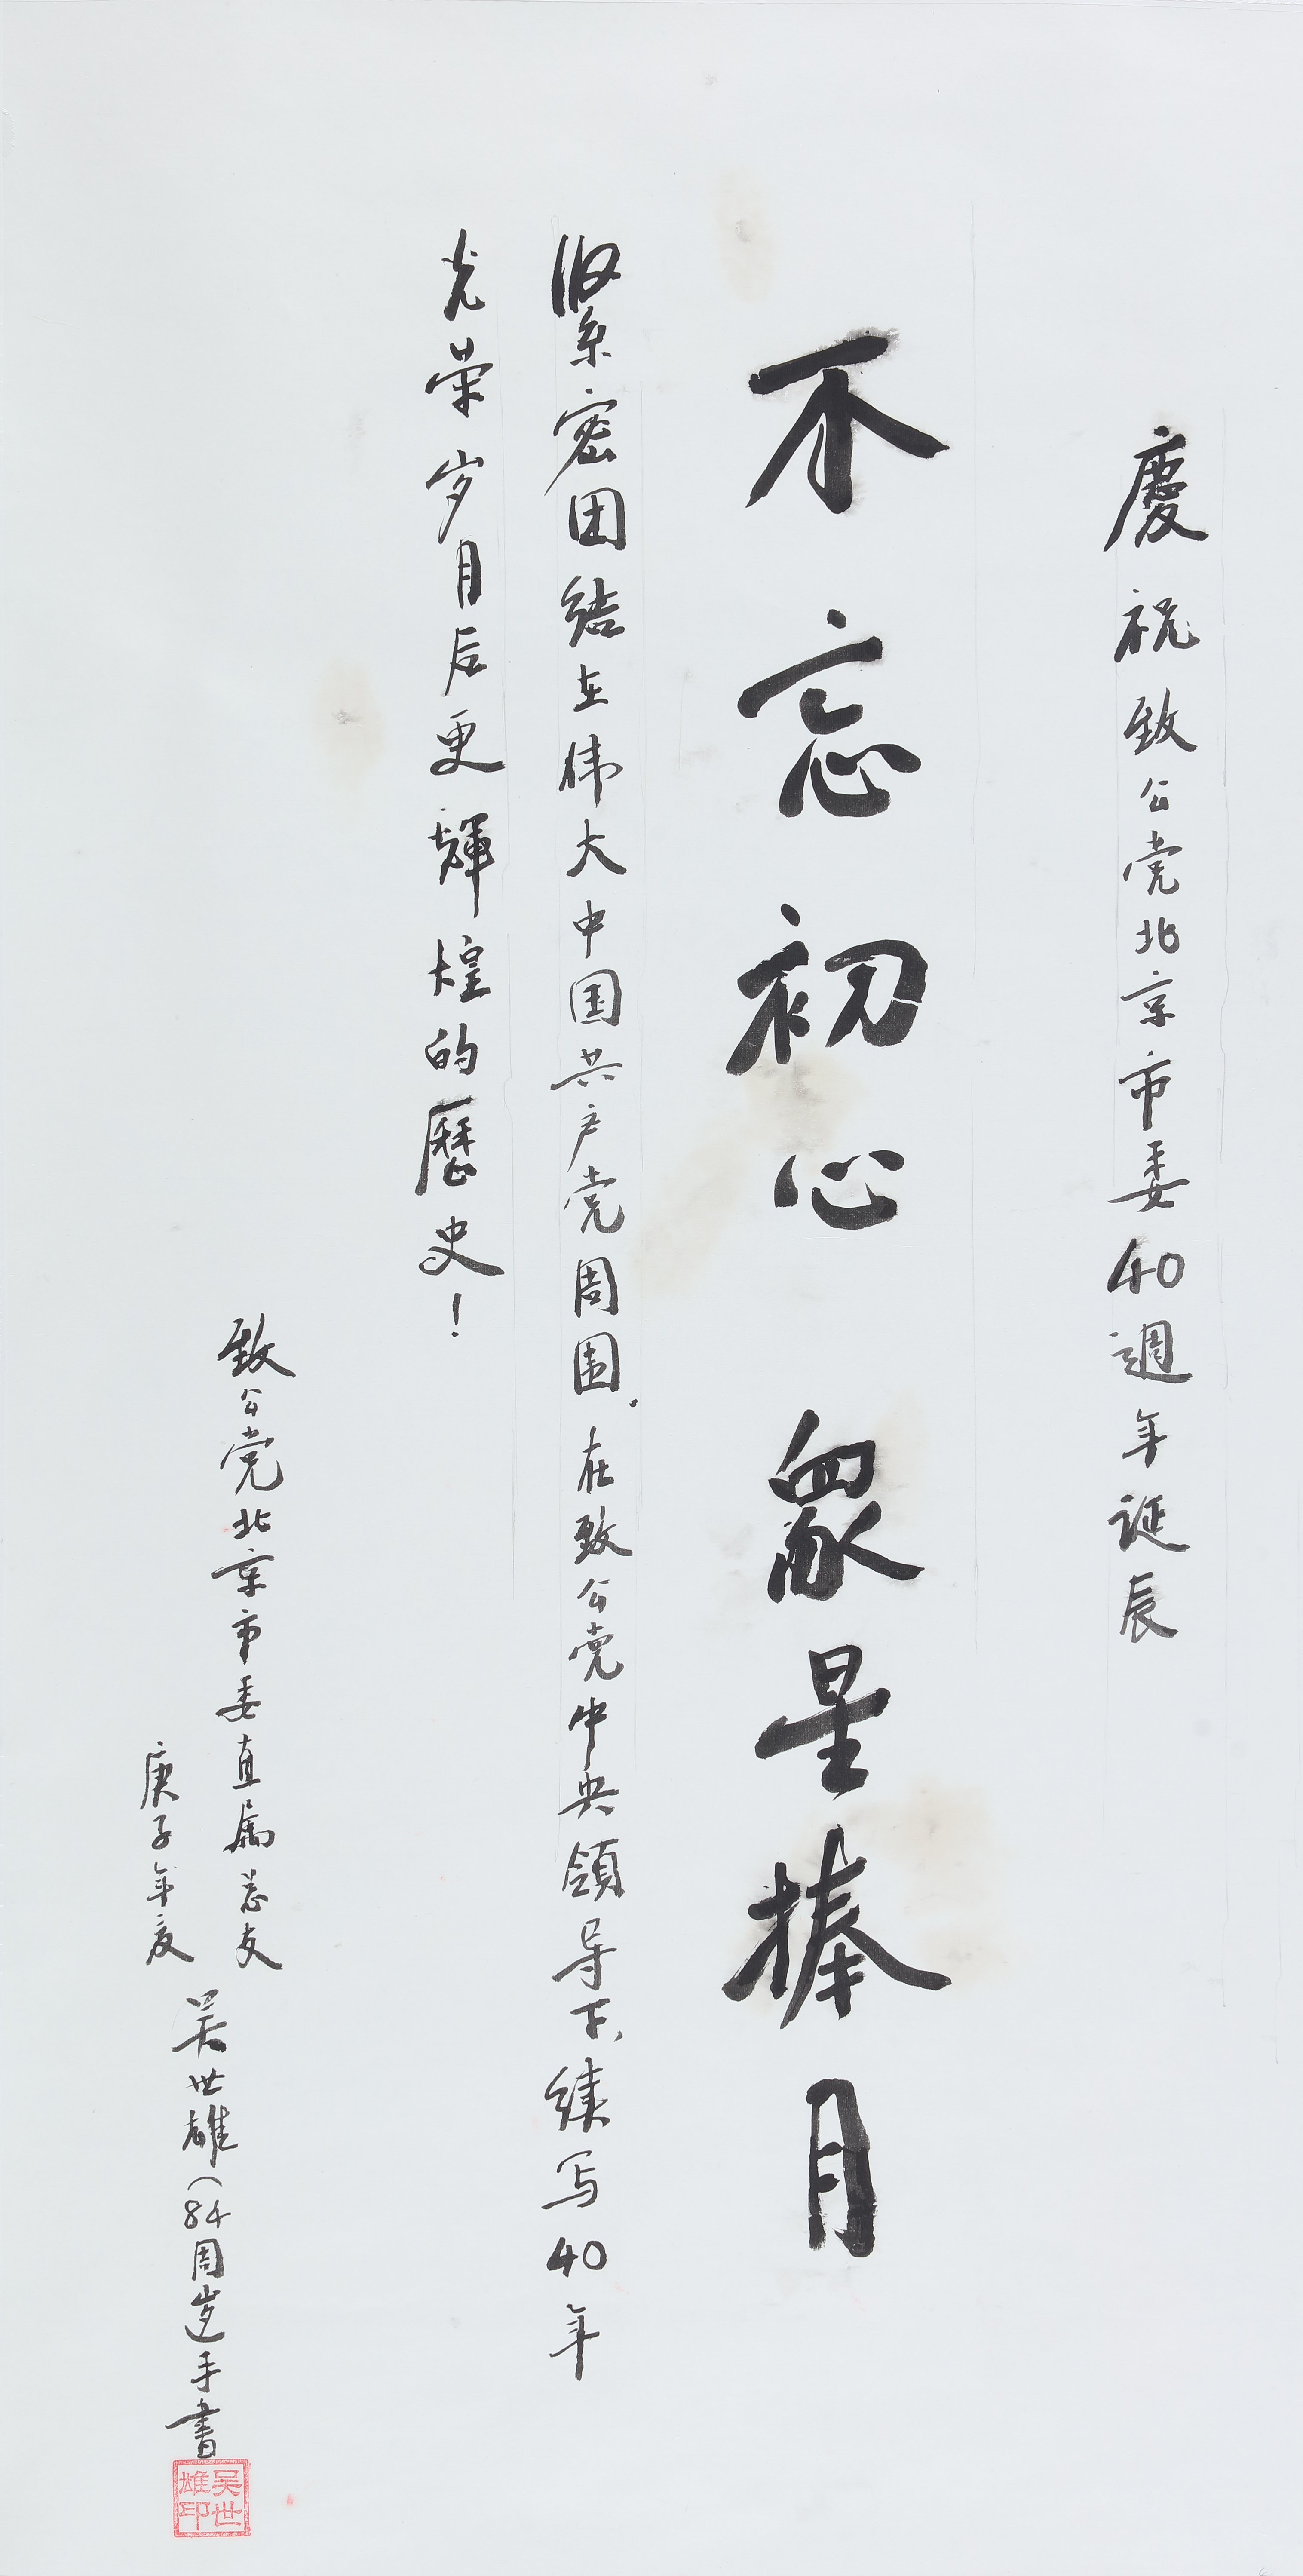 慶祝致公党北京市委40週年誕辰
不忘初心 眾星捧月
緊密团結在伟大中国共产党周围。在致公党中央領导下,續写40年
光荣岁月后更輝煌的歷史!
致公党北京市委直属总支
庚子年夏
吴世雄(84周岁)手書
吴世雄印